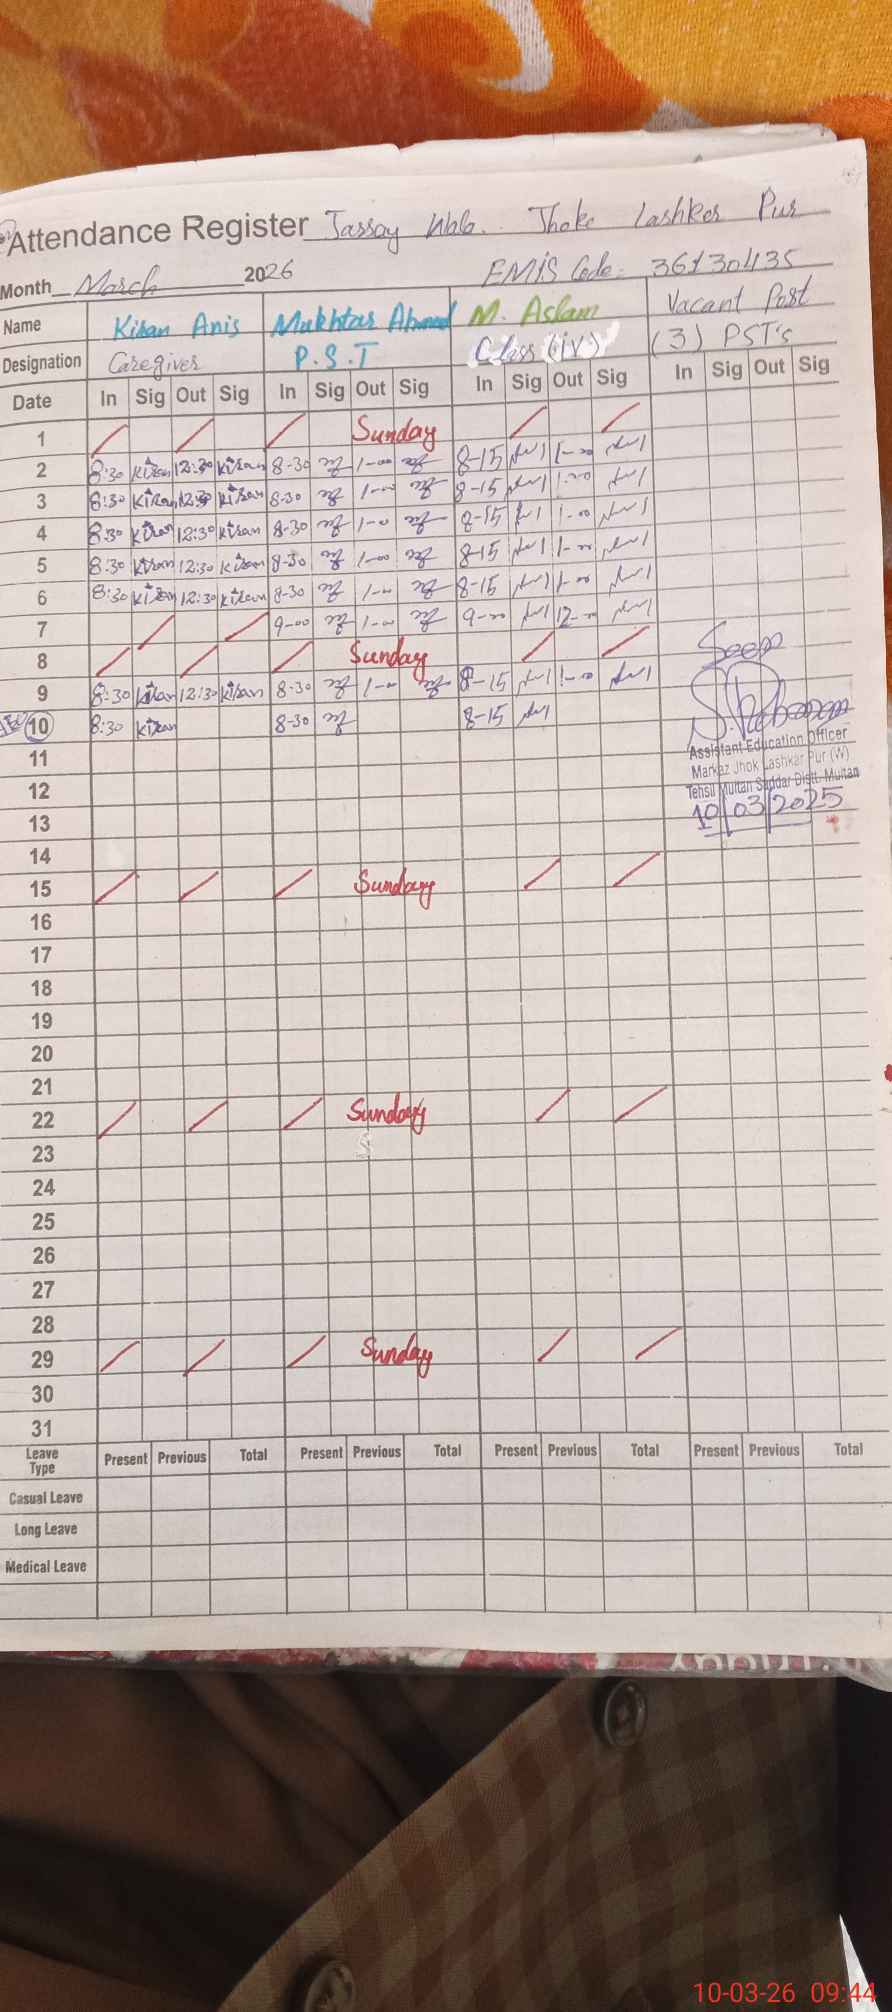 Attendance Register Jassay Wala. Jhoke Lashker Pur
Month March 2026 EMIS Code: 36130435
Name Kiran Anis Mukhtar Ahmad M. Aslam Vacant Post
Designation Caregiver P.S.T Class (iv) (3) PST's
Date In Sig Out Sig In Sig Out Sig In Sig Out Sig In Sig Out Sig
1 Sunday
2 8:30 Kiran 12:30 Kiran 8-30 1-00 8-15 1-00
3 8:30 Kiran 12:30 Kiran 8-30 1-00 8-15 1-00
4 8:30 Kiran 12:30 Kiran 8-30 1-00 8-15 1-00
5 8:30 Kiran 12:30 Kiran 8-30 1-00 8-15 1-00
6 8:30 Kiran 12:30 Kiran 8-30 1-00 8-15 1-00
7 9-00 1-00 9-00 12-00
8 Sunday
Seen
9 8:30 Kiran 12:30 Kiran 8-30 1-00 8-15 1-00
10 8:30 Kiran 8-30 8-15
Assistant Education Officer
11
Markaz Jhok Lashkar Pur (W)
Tehsil Multan Saddar Distt. Multan
12
10/03/2025
13
14
15 Sunday
16
17
18
19
20
21
22 Sunday
23
24
25
26
27
28
29 Sunday
30
31
Leave Type Present Previous Total Present Previous Total Present Previous Total Present Previous Total
Casual Leave
Long Leave
Medical Leave
10-03-26 09:44